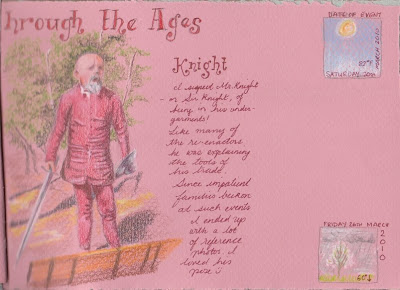 hrough the Ages
Knight
I Mr. Knight
- or Sir Knight, of
being in his under-
garments!
Like many of
the re-enactors
he was explaining
the tools of
his trade.
Since impatient
families beckon
at such events
I ended up
with a lot
of reference
photos. I
loved his
pose
DATE OF EVENT
MARCH 2010
SATURDAY 20th
FRIDAY 26TH MARCH
2010